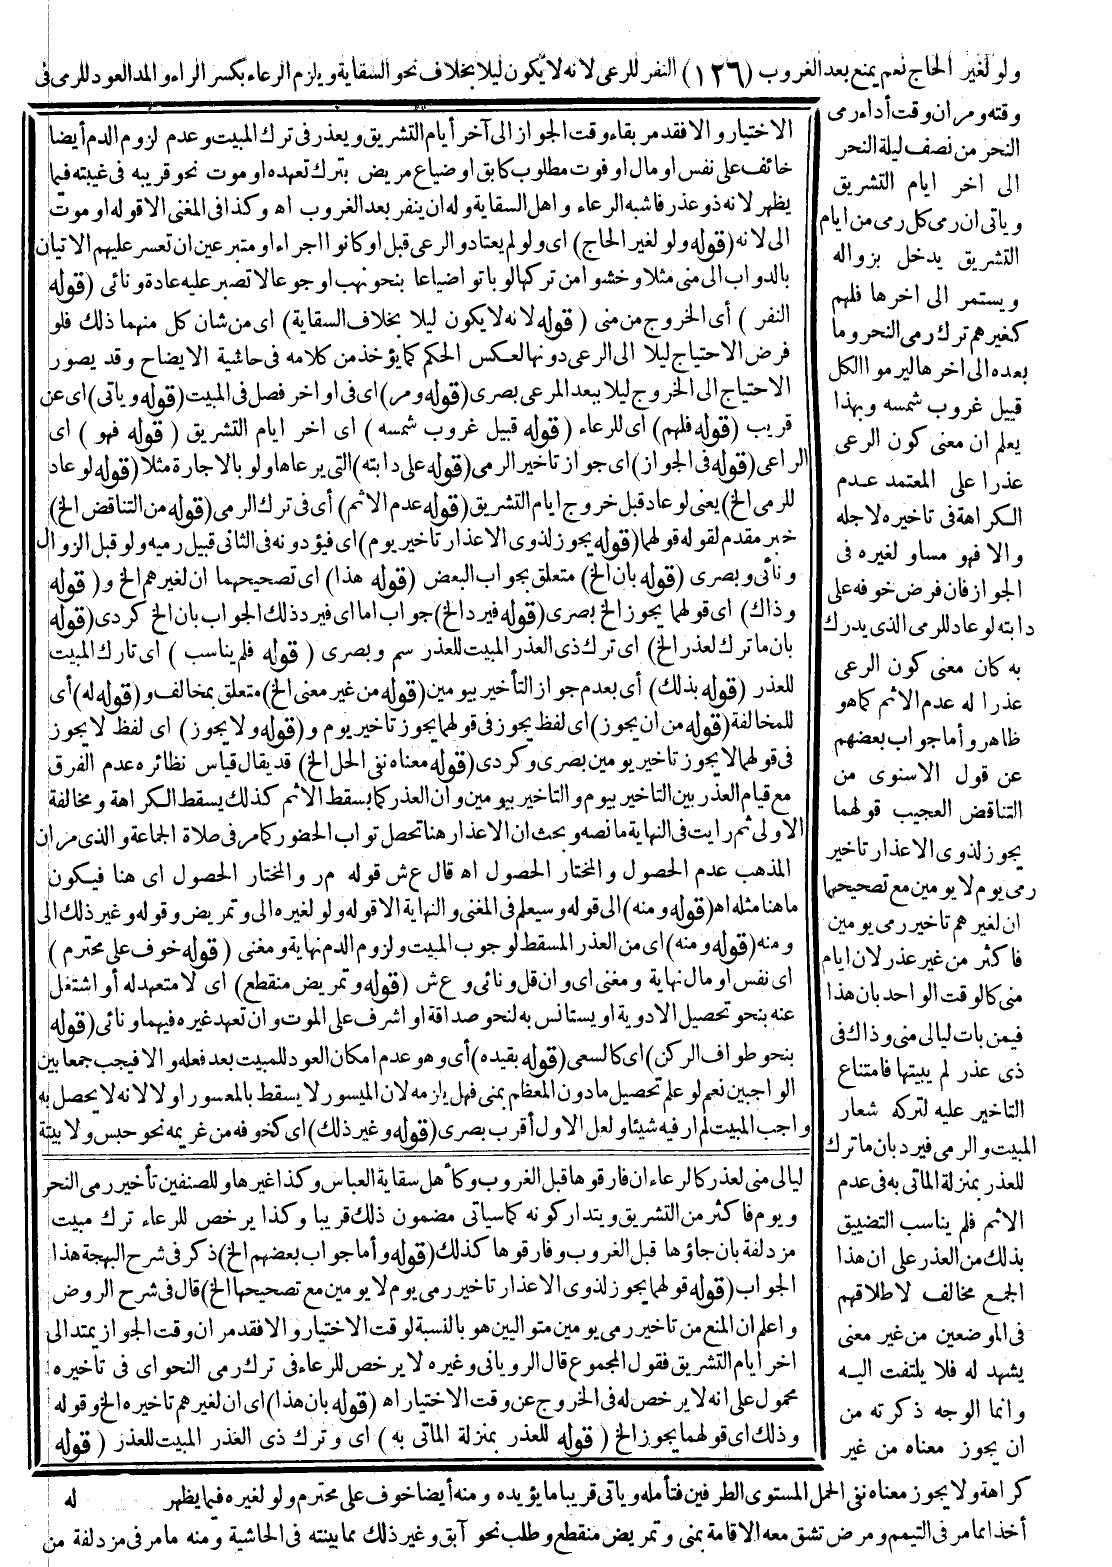 ولو لغير الحاج نعم يمنع بعد الغروب (١٢٦) النفر للرعى لانه لا يكون ليلا بخلاف نحو السقاية ويلزم الرعاء بكسر الراء والمد العود للرمى فى
وقته ومر ان وقت أداء رمى
النحر من نصف ليلة النحر
الى اخر ايام التشريق
وياتى ان رمى كل رمى من ايام
التشريق يدخل بزواله
ويستمر الى اخرها فلهم
كغيرهم ترك رمى النحر وما
بعده الى اخرها ليرموا الكل
قبيل غروب شمسه وبهذا
يعلم ان معنى كون الرعى
عذرا على المعتمد عدم
الكراهة فى تاخيره لاجله
والا فهو مساو لغيره فى
الجواز فان فرض خوفه على
دابته لو عاد للرمى الذى يدرك
به كان معنى كون الرعى
عذرا له عدم الاثم كما هو
ظاهر وأما جواب بعضهم
عن قول الاسنوى من
التناقض العجيب قولهما
يجوز لذوى الاعذار تاخير
رمى يوم لا يومين مع تصحيحهما
ان لغيرهم تاخير رمى يومين
فاكثر من غير عذر لان ايام
منى كالوقت الواحد بان هذا
فيمن بات ليالى منى وذاك فى
ذى عذر لم يبتها فامتناع
التاخير عليه لتركه شعار
المبيت والرمى فيرد بان ما ترك
للعذر بمنزلة الماتى به فى عدم
الاثم فلم يناسب التضييق
بذلك من العذر على ان هذا
الجمع مخالف لاطلاقهم
فى الموضعين من غير معنى
يشهد له فلا يلتفت اليه
وانما الوجه ذكرته من
ان يجوز معناه من غير
كراهة ولا يجوز معناه نفى الحل المستوى الطرفين فتأمله وياتى قريبا ما يؤيده ومنه أيضا خوف على محترم ولو لغيره فيما يظهر
أخذا مما مر فى التيمم ومرض تشق معه الاقامة بمنى وتمريض منقطع وطلب نحو آبق وغير ذلك مما بينته فى الحاشية ومنه ما مر فى مزدلفة من
الاختيار والا فقد مر بقاء وقت الجواز الى آخر أيام التشريق ويعذر فى ترك المبيت وعدم لزوم الدم أيضا
خائف على نفس او مال او فوت مطلوب كابق او ضياع مريض بترك تعهده او موت نحو قريبه فى غيبته فيما
يظهر لانه ذو عذر فاشبه الرعاء واهل السقاية وله ان ينفر بعد الغروب اه وكذا فى المغنى الا قوله او موت
الى لانه (قوله ولو لغير الحاج) اى ولو لم يعتادوا الرعى قبل او كانوا اجراء او متبرعين ان تعسر عليهم الاتيان
بالدواب الى منى مثلا وخشوا من تركها لو باتوا ضياعا بنحو نهب او جوعا لا تصبر عليه عادة ونائى (قوله
النفر) أى الخروج من منى (قوله لانه لا يكون ليلا بخلاف السقاية) اى من شان كل منهما ذلك فلو
فرض الاحتياج ليلا الى الرعى دونها لعكس الحكم كما يؤخذ من كلامه فى حاشية الايضاح وقد يصور
الاحتياج الى الخروج ليلا ببعد المرعى بصرى (قوله ومر) اى فى اواخر فصل فى المبيت (قوله وياتى) اى عن
قريب (قوله فلهم) اى للرعاء (قوله قبيل غروب شمسه) اى اخر ايام التشريق (قوله فهو) اى
الراعى (قوله فى الجواز) اى جواز تاخير الرمى (قوله على دابته) التى يرعاها ولو بالاجارة مثلا (قوله لو عاد
للرمى الخ) يعنى لو عاد قبل خروج ايام التشريق (قوله عدم الاثم) أى فى ترك الرمى (قوله من التناقض الخ)
خبر مقدم لقوله قولهما (قوله يجوز لذوى الاعذار تاخير يوم) اى فيؤدونه فى الثانى قبيل رميه ولو قبل الزوال
ونائى وبصرى (قوله بان الخ) متعلق بجواب البعض (قوله هذا) اى تصحيحهما ان لغيرهم الخ و (قوله
وذاك) اى قولهما يجوز الخ بصرى (قوله فيرد الخ) جواب اما اى فيرد ذلك الجواب بان الخ كردى (قوله
بان ما ترك لعذر الخ) اى ترك ذى العذر المبيت للعذر سم وبصرى (قوله فلم يناسب) اى تارك المبيت
للعذر (قوله بذلك) أى بعدم جواز التأخير بيومين (قوله من غير معنى الخ) متعلق بمخالف و (قوله له) أى
للمخالفة (قوله من ان يجوز) اى لفظ يجوز فى قولهما يجوز تاخير يوم و (قوله ولا يجوز) اى لفظ لا يجوز
فى قولهما لا يجوز تاخير يومين بصرى وكردى (قوله معناه نفى الحل الخ) قد يقال قياس نظائره عدم الفرق
مع قيام العذر بين التاخير بيوم والتاخير بيومين وان العذر كما يسقط الاثم كذلك يسقط الكراهة ومخالفة
الاولى ثم رايت فى النهاية ما نصه وبحث ان الاعذار هنا تحصل ثواب الحضور كما مر فى صلاة الجماعة والذى مر ان
المذهب عدم الحصول والمختار الحصول اه قال ع ش قوله مر والمختار الحصول اى هنا فيكون
ما هنا مثله اه (قوله ومنه) الى قوله وسيعلم فى المغنى والنهاية الا قوله ولو لغيره الى وتمريض وقوله وغير ذلك الى
ومنه (قوله ومنه) اى من العذر المسقط لوجوب المبيت ولزوم الدم نهاية ومغنى (قوله خوف على محترم)
اى نفس او مال نهاية ومغنى اى وان قل ونائى و ع ش (قوله وتمريض منقطع) اى لا متعهد له أو اشتغل
عنه بنحو تحصيل الادوية او يستانس به لنحو صداقة او اشرف على الموت وان تعهد غيره فيهما ونائى (قوله
بنحو طواف الركن) اى كالسعى (قوله بقيده) أى وهو عدم امكان العود للمبيت بعد فعله والا فيجب جمعا بين
الواجبين نعم لو علم تحصيل ما دون المعظم بمنى فهل يلزمه لان الميسور لا يسقط بالمعسور اولا لانه لا يحصل به
واجب المبيت لم ار فيه شيئا ولعل الاول أقرب بصرى (قوله وغير ذلك) اى كخوفه من غريمه نحو حبس ولا بينة
ليالى منى لعذر كالرعاء ان فارقوها قبل الغروب وكأهل سقاية العباس وكذا غيرها وللصنفين تأخير رمى النحر
ويوم فاكثر من التشريق ويتداركونه كما سياتى مضمون ذلك قريبا وكذا يرخص للرعاء ترك مبيت
مزدلفة بان جاؤها قبل الغروب وفارقوها كذلك (قوله وأما جواب بعضهم الخ) ذكر فى شرح البهجة هذا
الجواب (قوله قولهما يجوز لذوى الاعذار تاخير رمى يوم لا يومين مع تصحيحها الخ) قال فى شرح الروض
واعلم ان المنع من تاخير رمى يومين متواليين هو بالنسبة لوقت الاختيار والا فقد مر ان وقت الجواز يمتد الى
اخر ايام التشريق فقول المجموع قال الرويانى وغيره لا يرخص للرعاء فى ترك رمى النحر اى فى تاخيره
محمول على انه لا يرخص له فى الخروج عن وقت الاختيار اه (قوله بان هذا) اى ان لغيرهم تاخيره الخ وقوله
وذلك اى قولهما يجوز الخ (قوله للعذر بمنزلة الماتى به) اى وترك ذى العذر المبيت للعذر (قوله
له